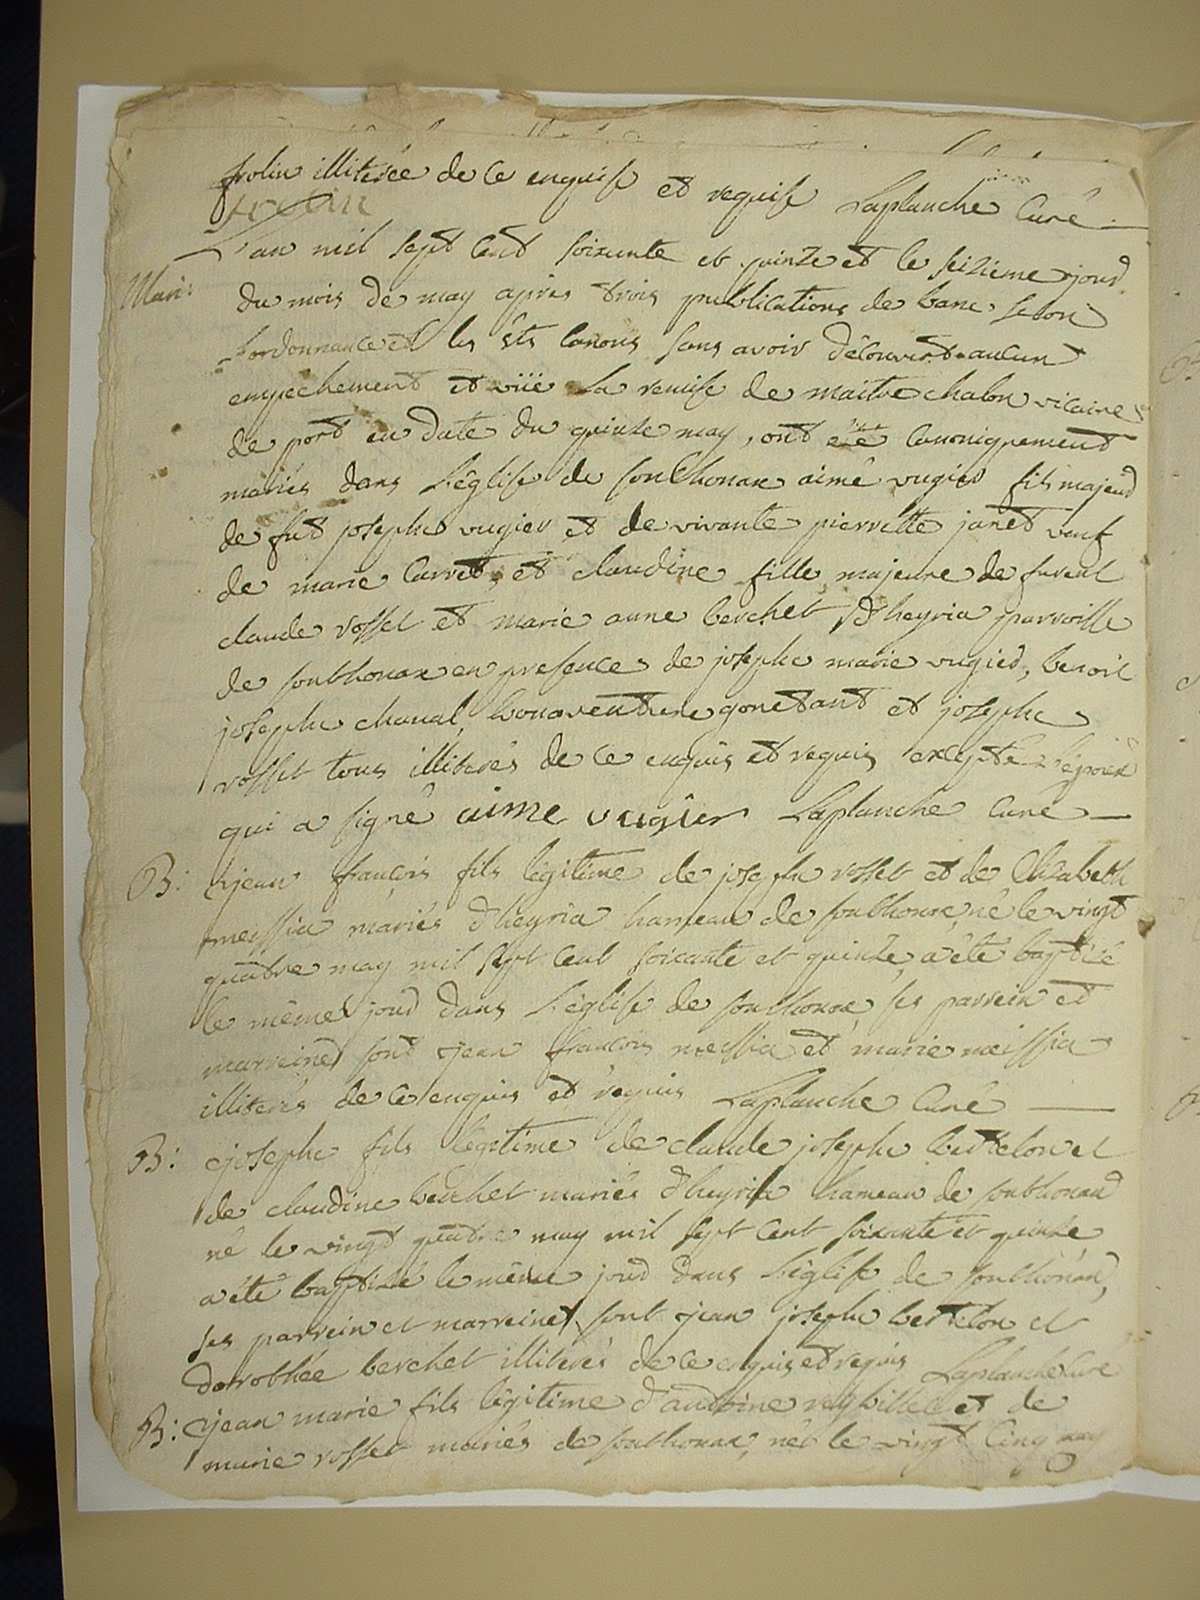 frolin illiterée de ce enquise et requise Laplanche Curé
frolin
L'an mil sept cent soixante et quinze et le seizieme jour
Mari:
du mois de may apres trois publications de banc selon
l'ordonnance et les sts canons sans avoir découvert aucun
empechement et vüë la remise de maitre chalon vicaire
de port en date du quinze may, ont été canoniquement
mariés dans l'église de soulthonax aimé vugier fils majeur
de fut joseph vugier et de vivante pierrette janet veuf
de marie carret, et claudine fille majeure de furent
claude rosset et marie anne berchet d'heyria parroisse
de southonax en presence de joseph marie vugier, benoit
joseph chanal, bonaventure gonetant et joseph
rosset tous illiterés de ce enquis et requis excepté l'époux
qui a signé aime vugier Laplanche Curé
B: jean françois fils légitime de joseph rosset et de Elizabeth
meyssia mariés d'heyria hameau de southonax, né le vingt
quatre may mil sept cent soixante et quinze, a été baptisé
le même jour dans l'église de southonax, ses parrein et
marreine sont jean françois meissia et marie meissia
illiterés de ce enquis et requis Laplanche Curé
B: joseph fils légitime de claude joseph berthelon et
de claudine berchet mariés d'heyria hameau de southonax
né le vingt quatre may mil sept cent soixante et quinze
a été baptisé le même jour dans l'église de southonax,
ses parrein et marreine sont jean joseph berthelon et
dorothée berchet illiterés de ce enquis et requis Laplanche Curé
B: jean marie fils légitime d'antoine reybillet et de
marie rosset mariés de southonax, né le vingt cinq may